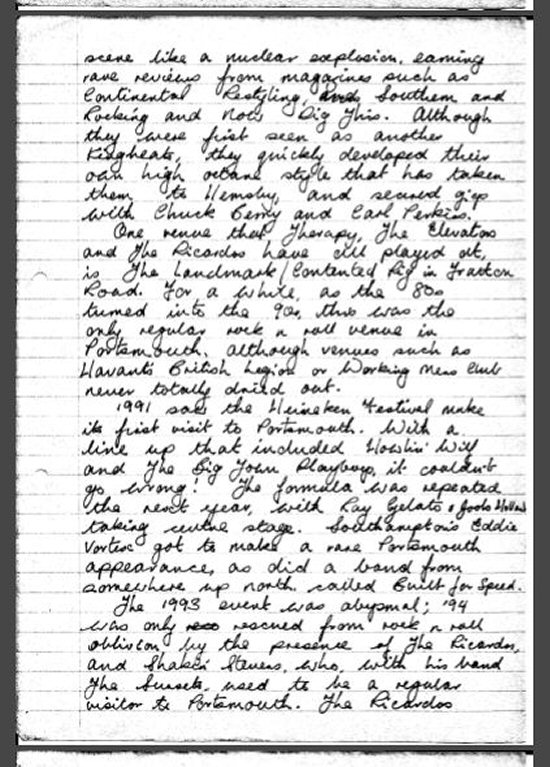 scene like a nuclear explosion, earning
rave reviews from magazines such as
Continental Restyling, Southern and
Rocking and Now Dig This. Although
they were first seen as another
Kingbeats, they quickly developed their
own high octane style that has taken
them to Hemsby, and secured gigs
with Chuck Berry and Carl Perkins.
One venue that Therapy, The Elevators
and The Ricardos have all played at,
is The Landmark/Contented Pig in Fratton
Road. For a while, as the 80s
turned into the 90s, this was the
only regular rock n roll venue in
Portsmouth, although venues such as
Havants British Legion or Working Mens Club
never totally dried out.
1991 saw the Heineken Festival make
its first visit to Portsmouth. With a
line up that included Howlin' Wilf
and The Big Town Playboys, it couldn't
go wrong! The formula was repeated
the next year, with Ray Gelato & Jools Holland
taking centre stage. Southampton's Eddie
Vortex got to make a rare Portsmouth
appearance, as did a band from
somewhere up north called Built for Speed.
The 1993 event was abysmal; '94
was only rescued from rock n roll
oblivion by the presence of The Ricardos,
and Shakin Stevens, who, with his band
The Sunsets, used to be a regular
visitor to Portsmouth. The Ricardos